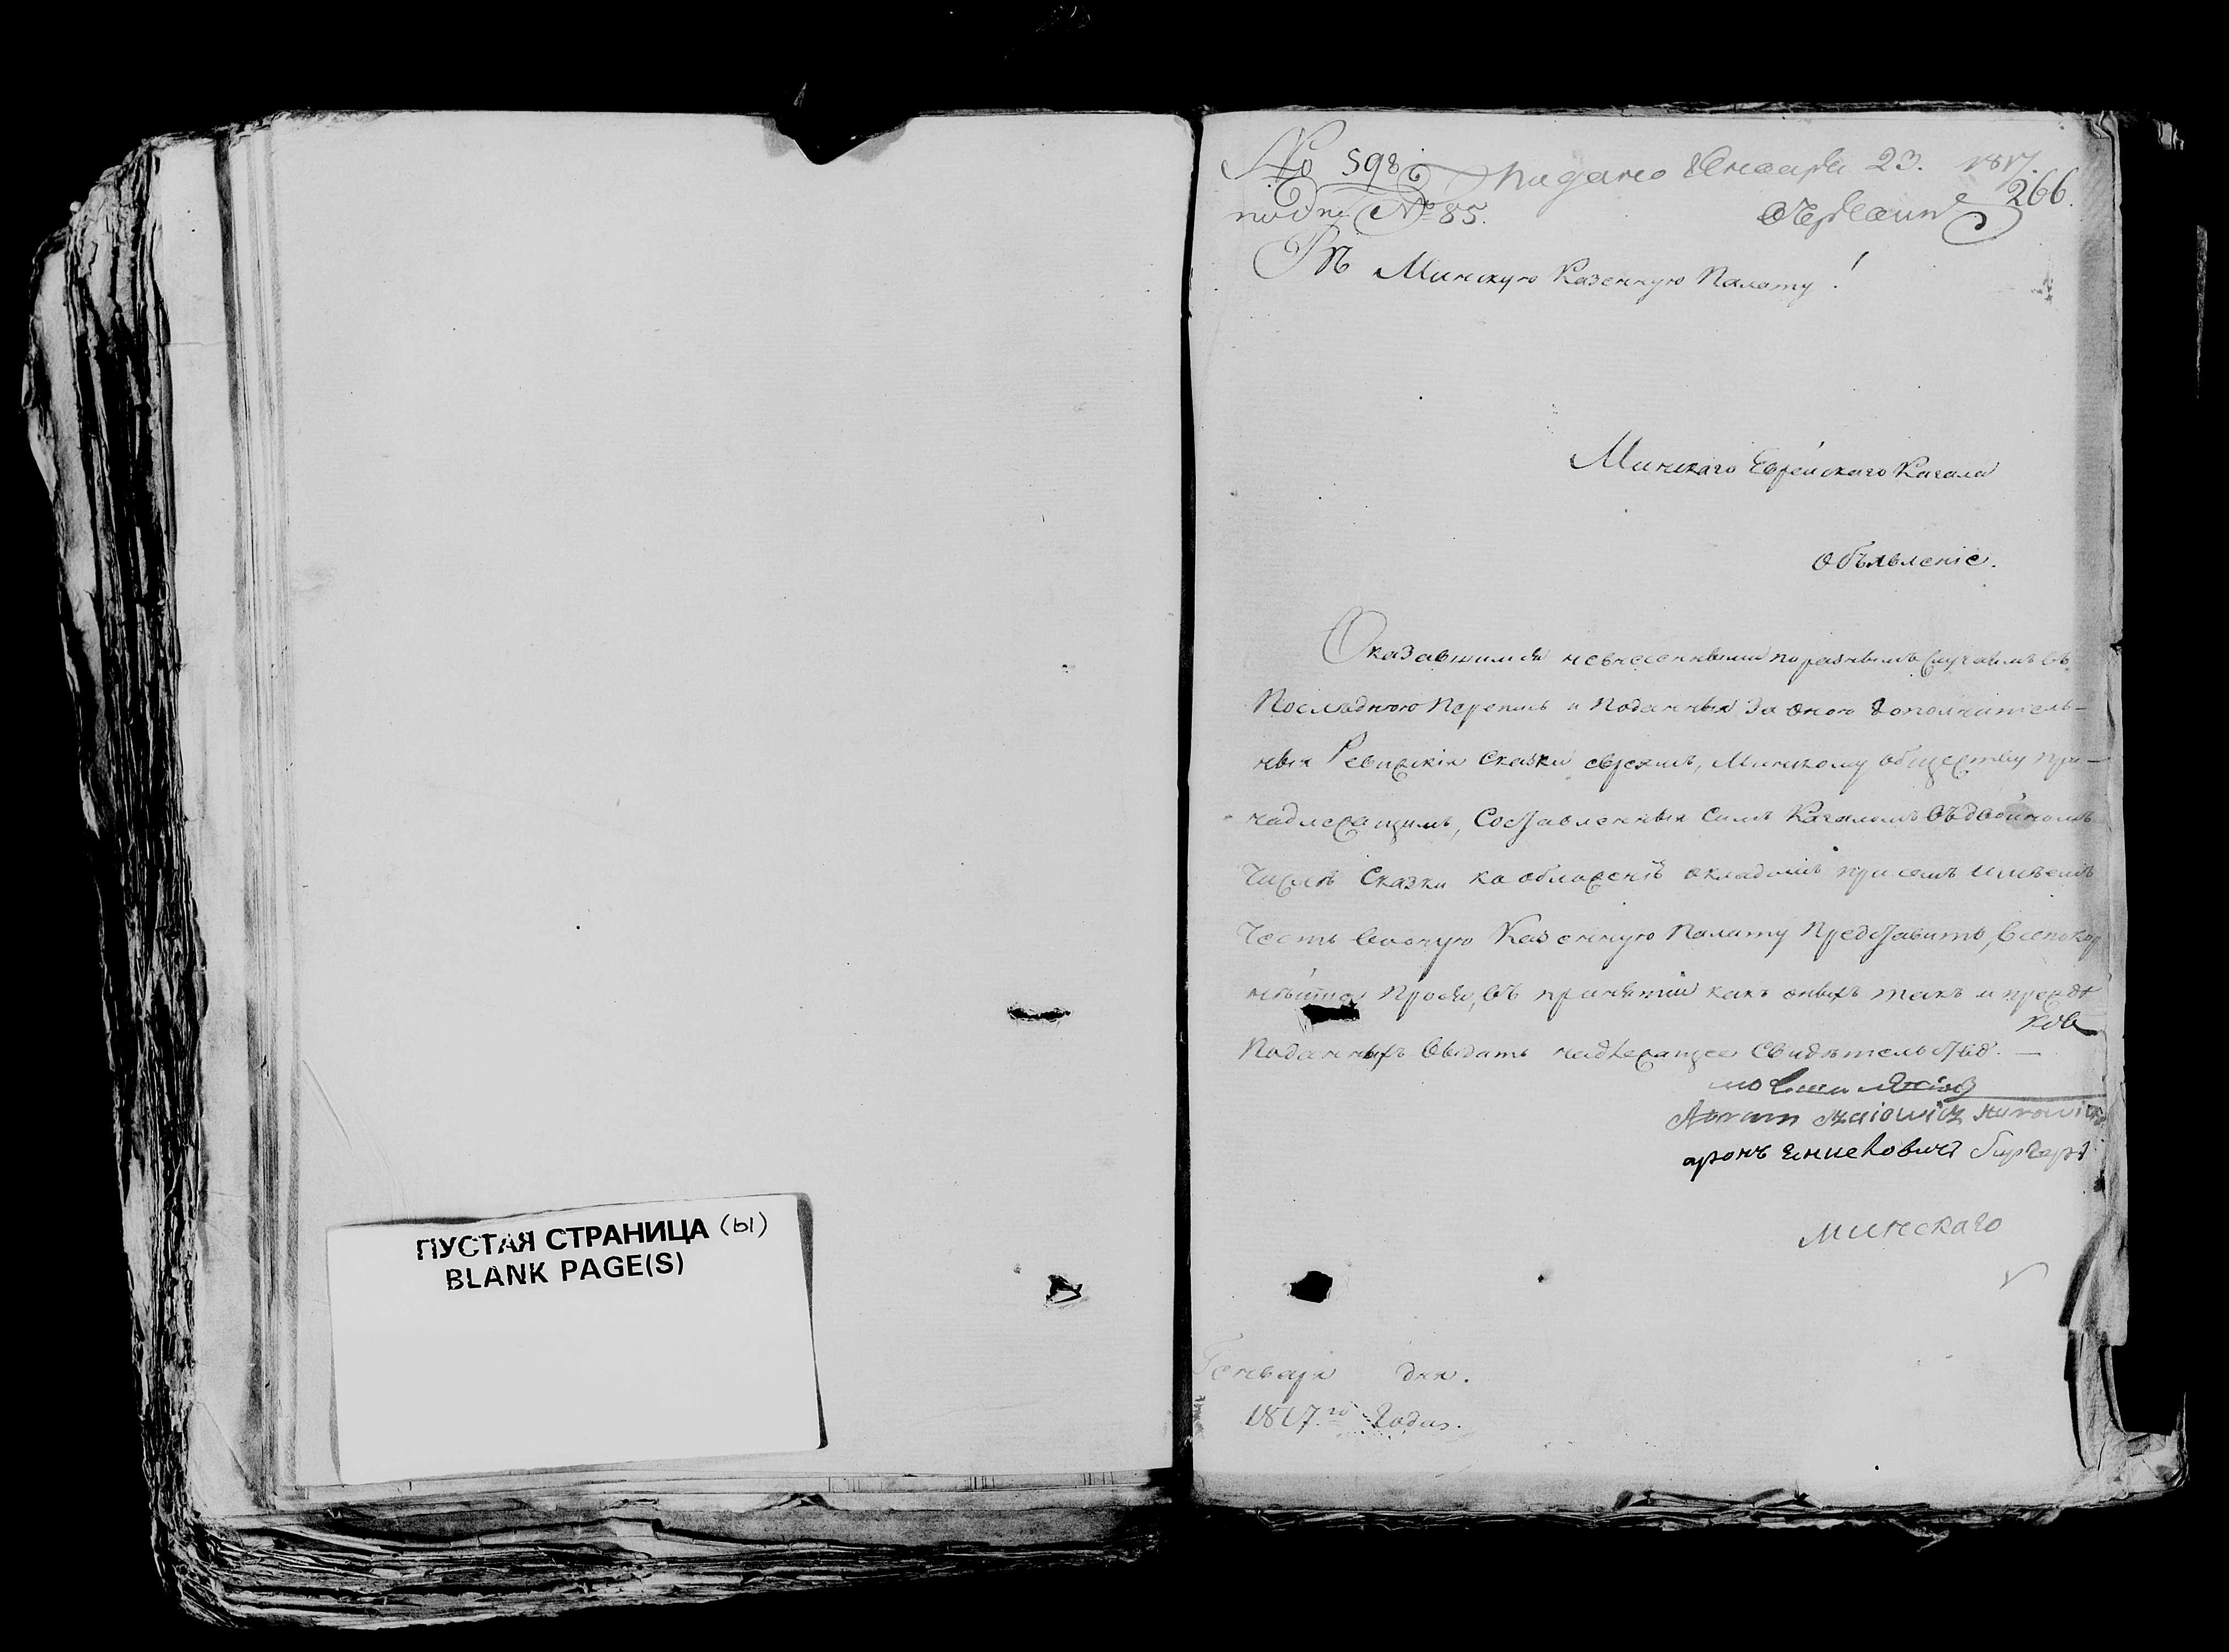 ПУСТАЯ СТРАНИЦА (ы)
BLANK PAGE(S)
№ 598 Подано Генваря 23. 1817.
266.
№ 85.
Въ Минскую Казенную Палату!
Минскаго Еврейскаго Кагала
Объявленіе.
Оказавшимся невнесенными поразнымъ Случаямъ въ
Послѣднюю Перепись и Поданныя За оною дополнитель-
ныя Ревизкія Сказки евреямъ, Минскому обществу при-
надлежащимъ, Составленныя Симъ Кагаломъ Въдвойномъ
Числѣ Сказки ко обложенію окладомъ при семъ имѣемъ
Честь Вооную Казенную Палату Представить, Всепокор
нѣйше Прося, въ принятіи какъ оныхъ такъ и прежде
Поданныхъ Выдать надлежащее Свидѣтельство. —
Abram
аронъ
Минскаго
Генваря дня.
1817.го Года.